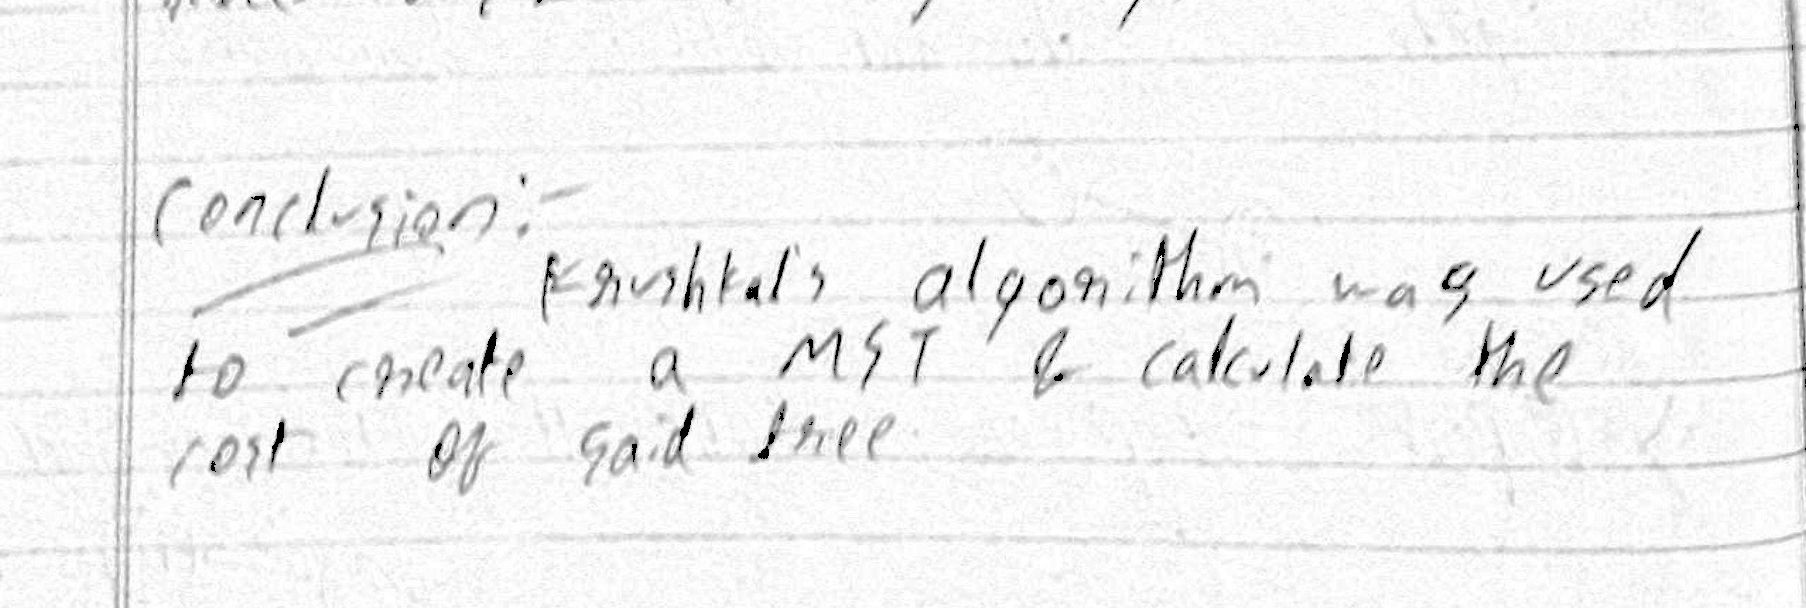 Conclusion:-
Krushkal's algorithm was used
to create a MST & calculate the
cost of said tree